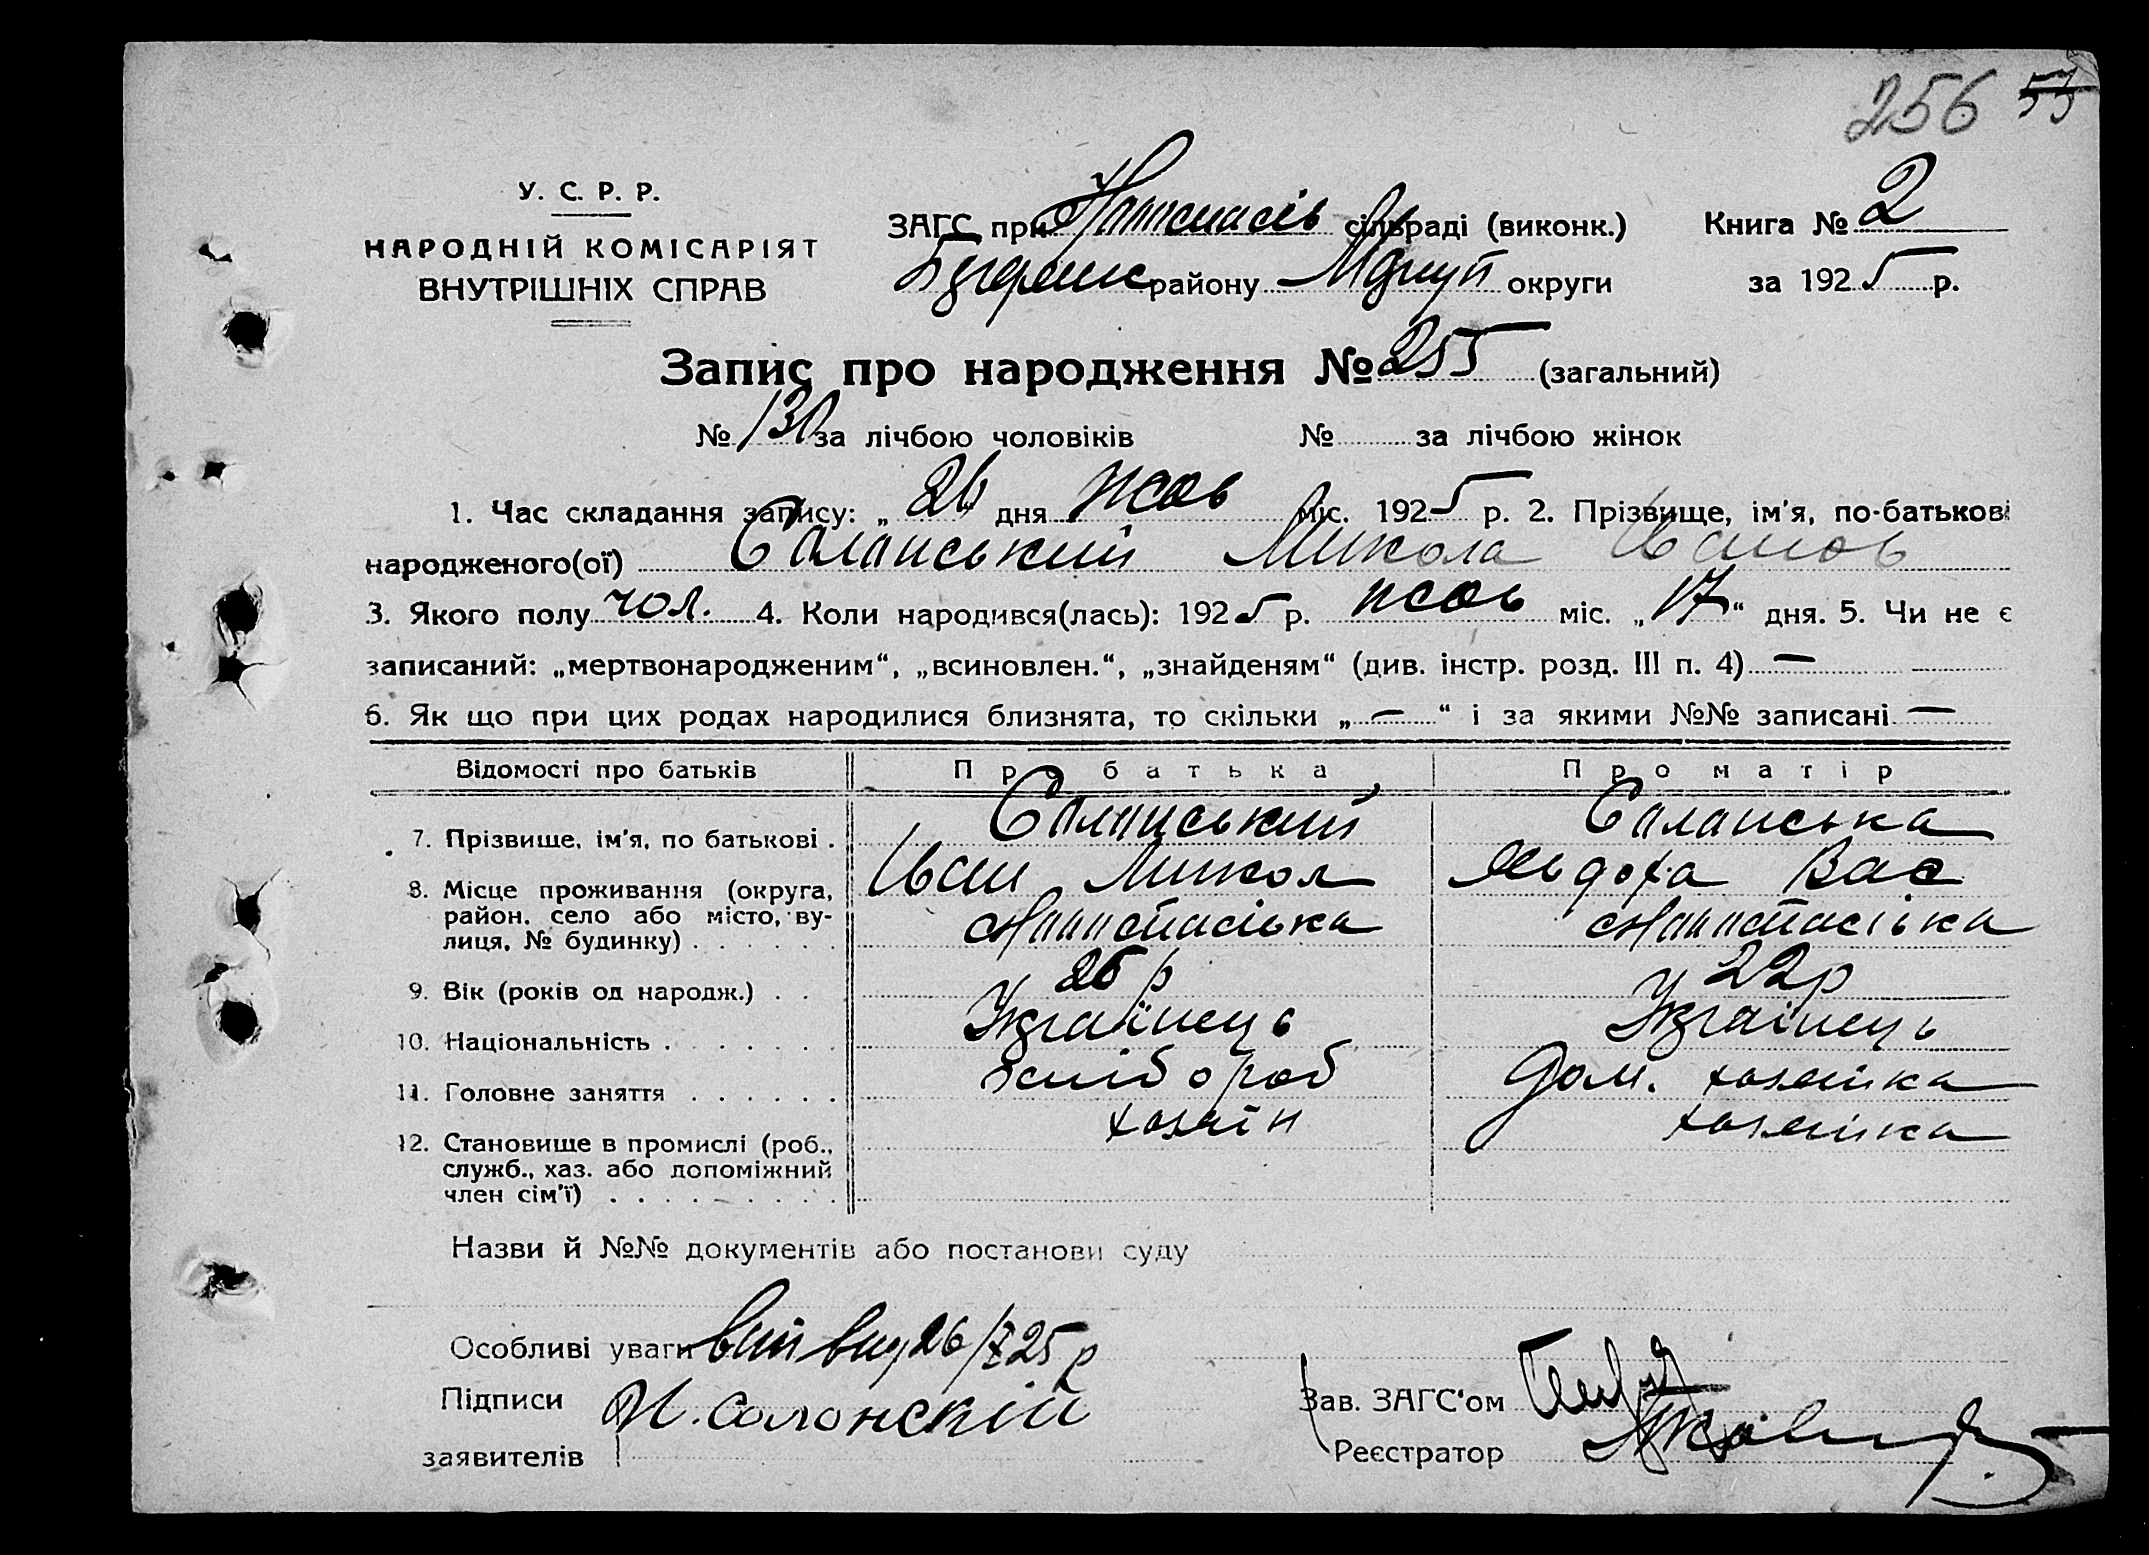 256 53
У. С. Р. Р.
НАРОДНІЙ КОМІСАРІЯТ
ВНУТРІШНІХ СПРАВ
ЗАГС при сільраді (виконк.) Книга № 2
району округи за 1925 р.
Запис про народження № 255 (загальний)
№ 130 за лічбою чоловіків № за лічбою жінок
1. Час складання запису: „26“ дня жов міс. 1925 р. 2. Прізвище, ім'я, по-батькові
народженого(ої) Саланський Микола Іванов
3. Якого полу чол. 4. Коли народився(лась): 1925 р. жов міс. „17“ дня. 5. Чи не є
записаний: „мертвонародженим“, „всиновлен.“, „знайденям“ (див. інстр. розд. III п. 4) —
6. Як що при цих родах народилися близнята, то скільки „—“ і за якими №№ записані —
Відомості про батьків Про батька Про матір
7. Прізвище, ім'я, по батькові . Саланський Саланська
Іван Микол Явдоха Вас
8. Місце проживання (округа, район, село або місто, вулиця, № будинку) . . . . . . Анастасівка Анастасівка
9. Вік (років од народж.) . . . 26 р 22 р
10. Національність . . . . . . . Українець Українець
11. Головне заняття . . . . . . хлібороб Дом. хазяйка
12. Становище в промислі (роб., служб., хаз. або допоміжний член сім'ї) . . . . . . . . . хазяїн хазяйка
Назви й №№ документів або постанови суду
Особливі уваги 26/X 25 р
Підписи И. Салонскій Зав. ЗАГС'ом
заявителів Реєстратор